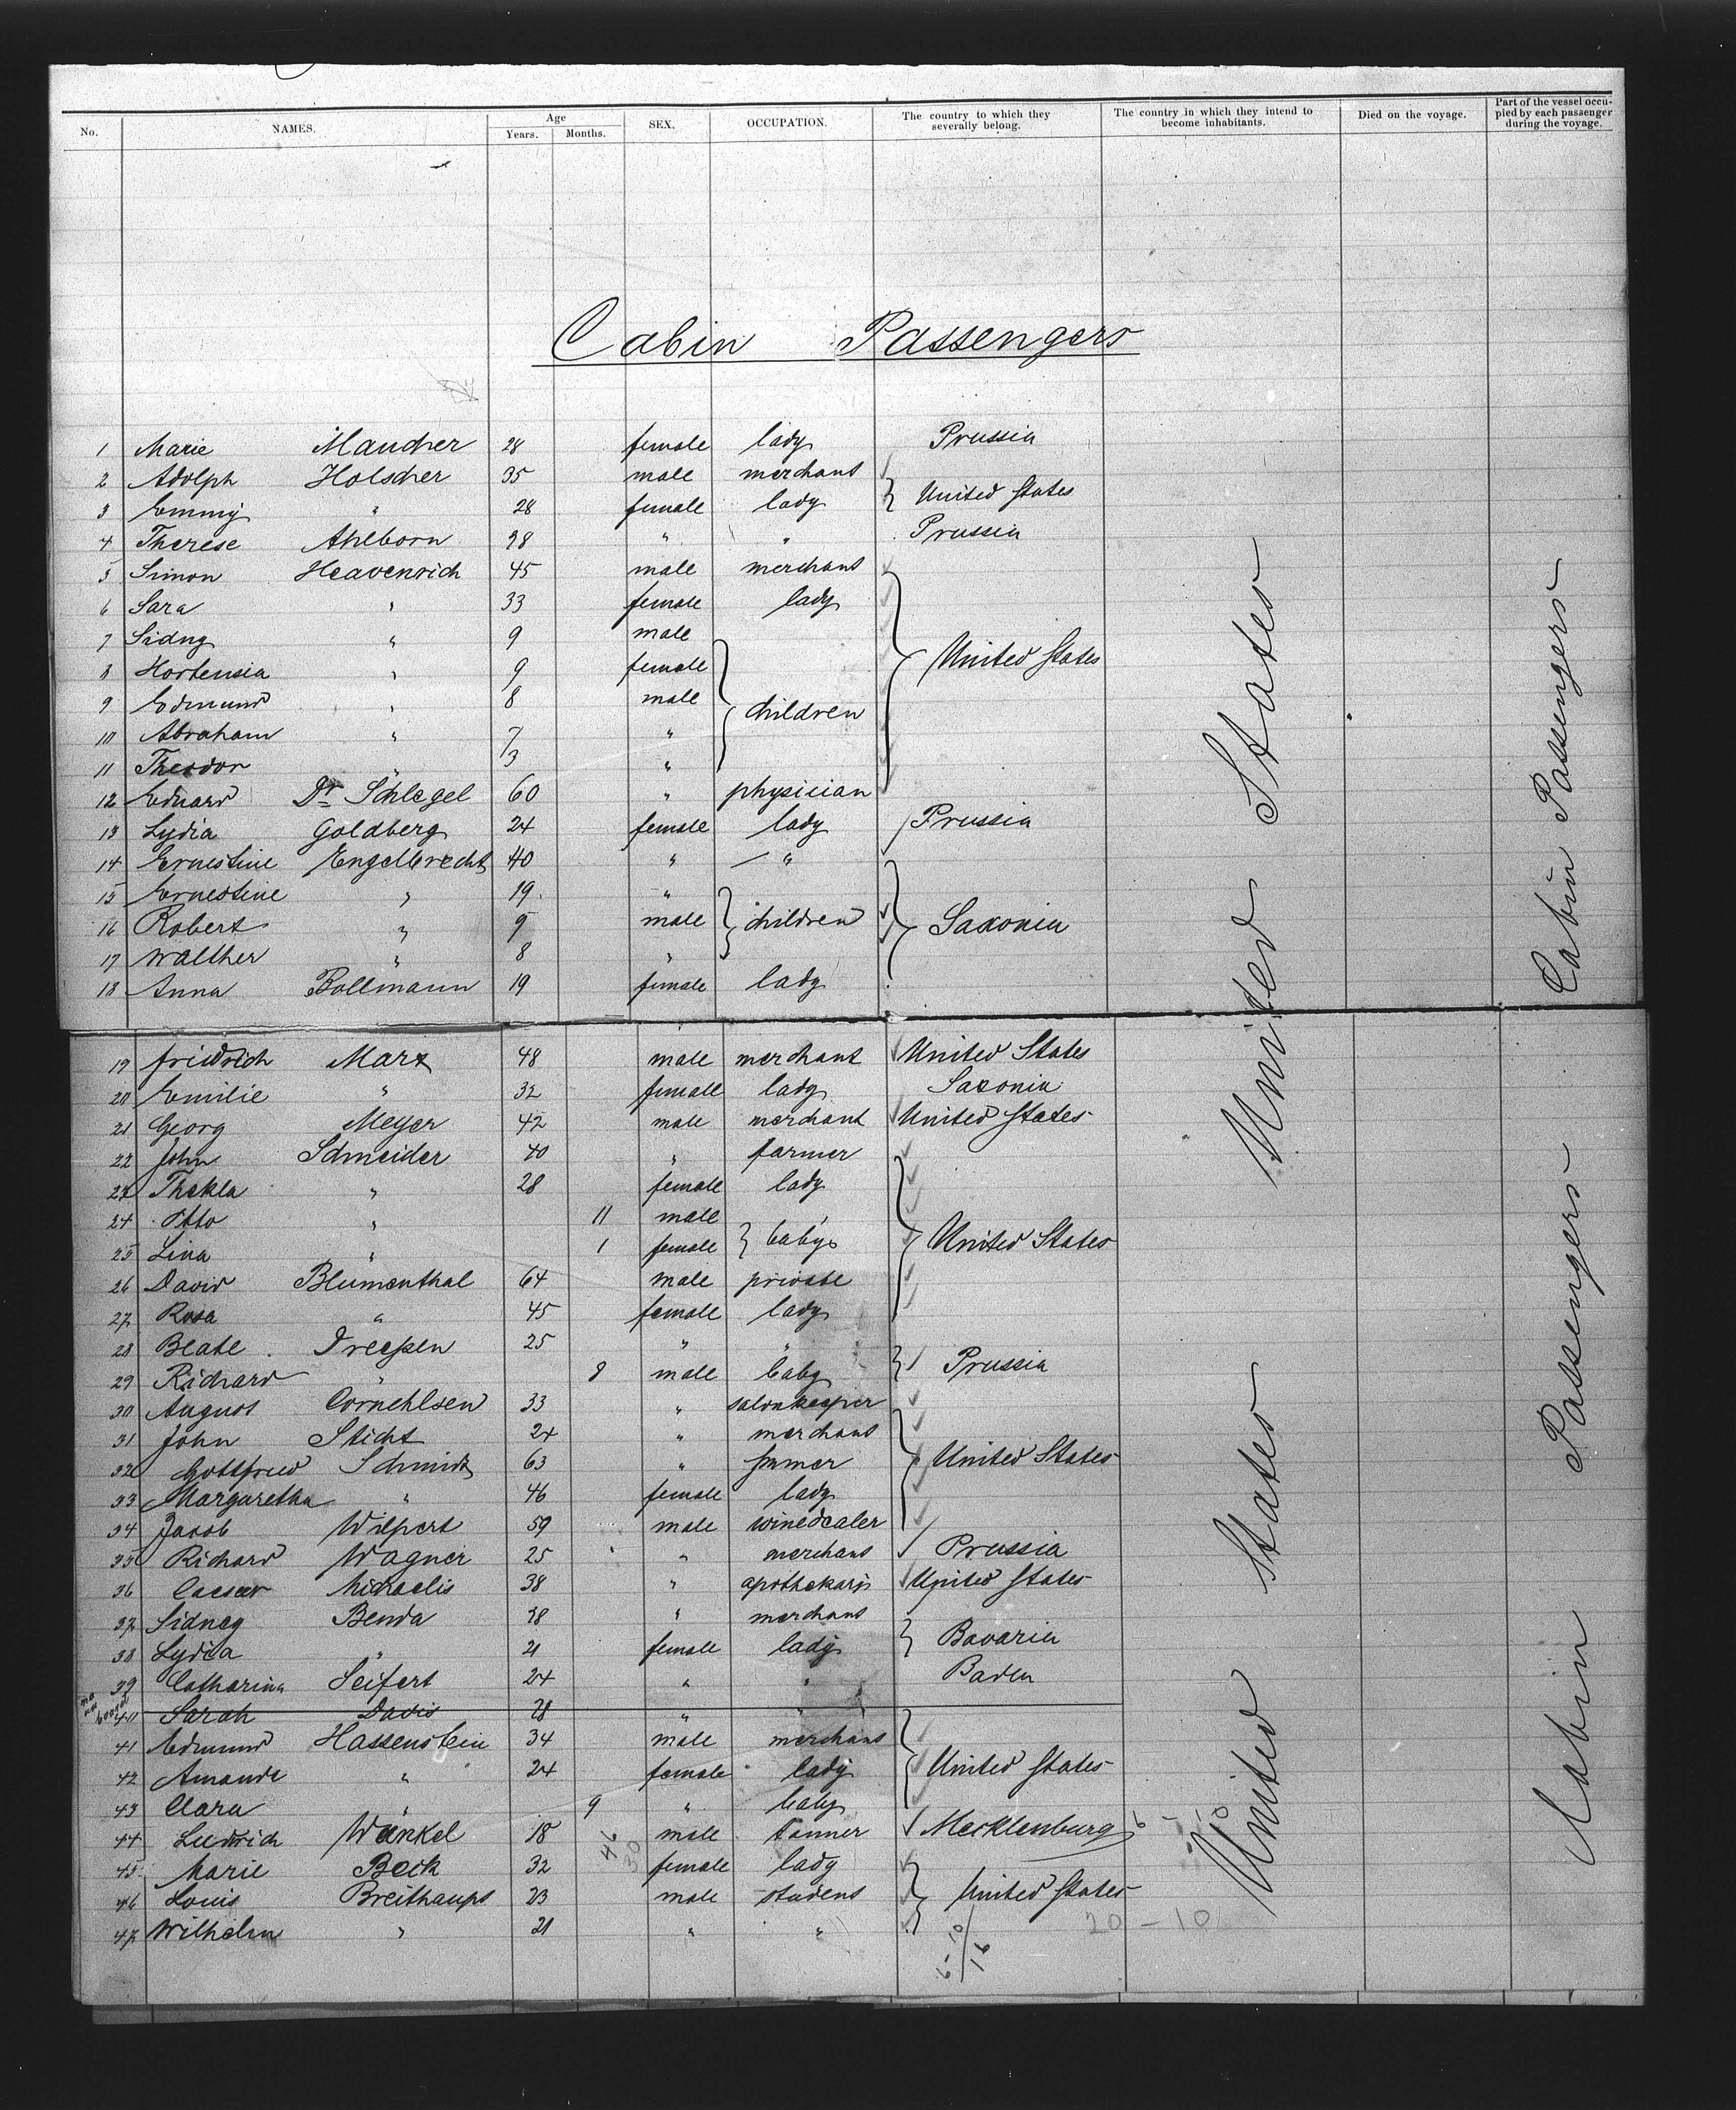 No. NAMES. Age Years. Months. SEX. OCCUPATION. The country to which they severally belong. The country in which they intend to become inhabitants. Died on the voyage. Part of the vessel occupied by each passenger during the voyage.
Cabin Passengers
1 Marie Maucher 28 female lady Prussia
2 Adolph Holscher 35 male merchant
3 Emmy " 28 female lady } United States
4 Therese Ahlborn 28 " " Prussia
5 Simon Heavenrich 45 male merchant
6 Sara " 33 female lady
7 Sidny " 9 male
8 Hortensia " 9 female } United States
9 Edmund " 8 male } children
10 Abraham " 7 "
11 Theodor " 3 "
12 Eduard Dr Schlegel 60 " physician
13 Lydia Goldberg 24 female lady Prussia
14 Ernestine Engelbrecht 40 " "
15 Ernestine " 19 "
16 Robert " 9 male } children } Saxonia
17 Walther " 8 "
18 Anna Bollmann 19 female lady
19 Friedrich Marx 48 male merchant United States
20 Emilie " 32 female lady Saxonia
21 Georg Meyer 42 male merchant United States
22 John Schneider 40 " farmer
23 Thekla " 28 female lady
24 Otto " 11 male
25 Lina " 1 female } babys } United States
26 David Blumenthal 64 male private
27 Rosa " 45 female lady
28 Beate Dreessen 25 " "
29 Richard " 8 male baby } Prussia
30 August Cornehlsen 33 " salonkeeper
31 John Sticht 24 " merchant
32 Gottfried Schmidt 63 " farmer } United States
33 Margaretha " 46 female lady
34 Jacob Wilpert 59 male winedealer
35 Richard Wagner 25 " merchant Prussia
36 Caesar Michaelis 38 " apothekary United States
37 Sidney Benda 28 " merchant
38 Lydia " 21 female lady } Bavaria
39 Catharina Seifert 24 " " Baden
40 Sarah Davis 28 " "
41 Edmund Hassenstein 34 male merchant
42 Amanda " 24 female lady } United States
43 Clara " 9 " baby
44 Ludwich Wenkel 18 male tanner Mecklenburg
45 Marie Beck 32 female lady
46 Louis Breithaupt 23 male student } United States
47 Wilhelm " 21 " "
20 - 10
United States
United States
Cabin Passengers
Cabin Passengers